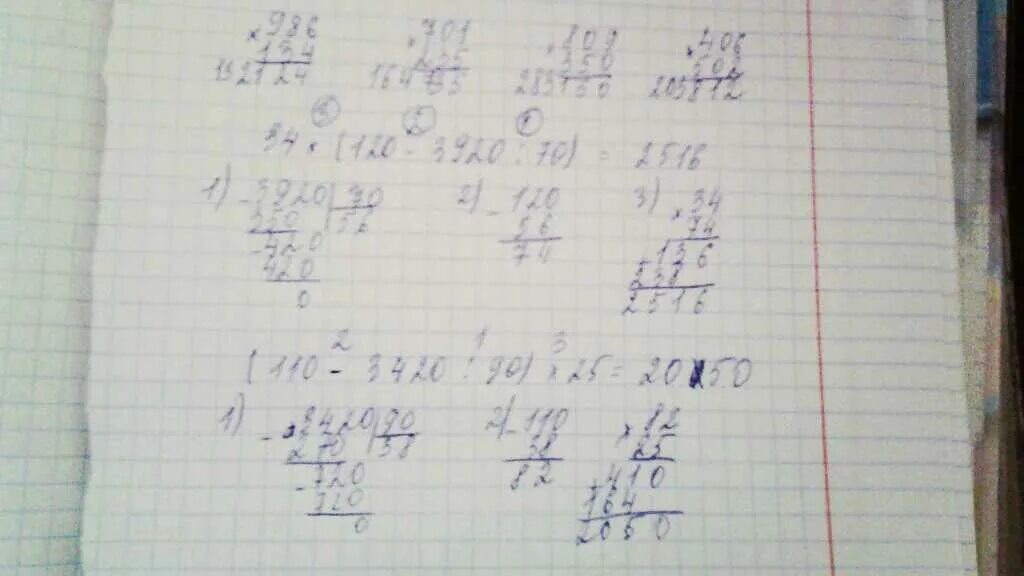 ×986 ×701 ×809 ×406
134 235 350 502
132124 164 283150 203812
3 2 1
34 × (120 - 3920 : 70) = 2516
1) -3920 70 2) -120 3) ×34
350 56 56 74
-420 74 136
420 238
0 2516
2 1 3
(110 - 3420 : 90) × 25 = 2050
1) -3420 90 2) -110 ×82
270 38 38 25
-720 82 410
720 164
0 2050